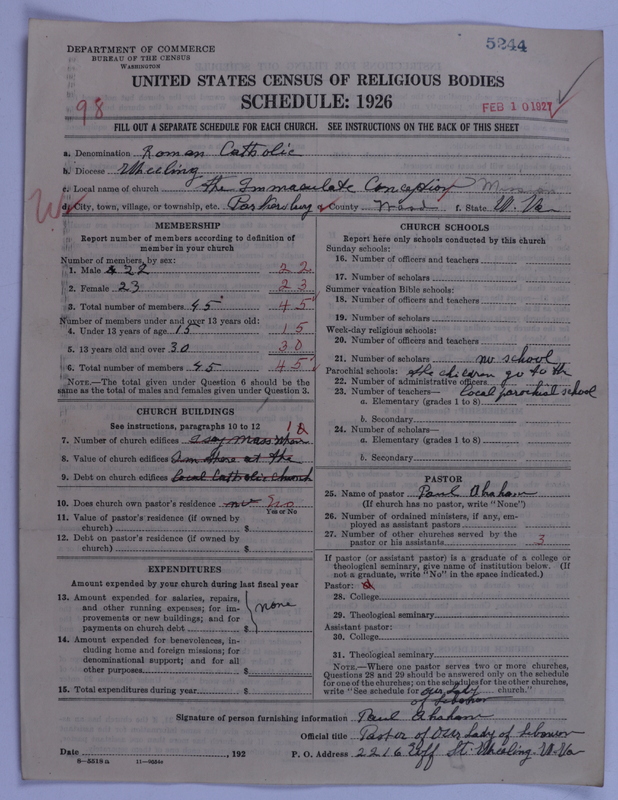 DEPARTMENT OF COMMERCE
BUREAU OF THE CENSUS
WASHINGTON
5244
UNITED STATES CENSUS OF RELIGIOUS BODIES
SCHEDULE: 1926
98
FEB 10 1927
FILL OUT A SEPARATE SCHEDULE FOR EACH CHURCH. SEE INSTRUCTIONS ON THE BACK OF THIS SHEET
a. Denomination Roman Catholic
b. Diocese Wheeling
c. Local name of church the Immaculate Conception Mission
d. City, town, village, or township, etc. Parkersburg e. County Wood f. State W. Va
MEMBERSHIP
Report number of members according to definition of member in your church
Number of members, by sex:
1. Male 22 22
2. Female 23 23
3. Total number of members 45 45
Number of members under and over 13 years old:
4. Under 13 years of age 15 15
5. 13 years old and over 30 30
6. Total number of members 45 45
NOTE.—The total given under Question 6 should be the
same as the total of males and females given under Question 3.
CHURCH BUILDINGS
See instructions, paragraphs 10 to 12
7. Number of church edifices I say mass when
8. Value of church edifices I'm there at the
9. Debt on church edifices local Catholic church
10. Does church own pastor's residence no No
Yes or No
11. Value of pastor's residence (if owned by
church) $
12. Debt on pastor's residence (if owned by
church) $
EXPENDITURES
Amount expended by your church during last fiscal year
13. Amount expended for salaries, repairs,
and other running expenses; for im-
provements or new buildings; and for
payments on church debt $ none
14. Amount expended for benevolences, in-
cluding home and foreign missions; for
denominational support; and for all
other purposes $
15. Total expenditures during year $
CHURCH SCHOOLS
Report here only schools conducted by this church
Sunday schools:
16. Number of officers and teachers
17. Number of scholars
Summer vacation Bible schools:
18. Number of officers and teachers
19. Number of scholars
Week-day religious schools:
20. Number of officers and teachers
21. Number of scholars no school
Parochial schools: the children go to the
22. Number of administrative officers
23. Number of teachers— local parochial school
a. Elementary (grades 1 to 8)
b. Secondary
24. Number of scholars—
a. Elementary (grades 1 to 8)
b. Secondary
PASTOR
25. Name of pastor Paul Abraham
(If church has no pastor, write "None")
26. Number of ordained ministers, if any, em-
ployed as assistant pastors
27. Number of other churches served by the
pastor or his assistants 3
If pastor (or assistant pastor) is a graduate of a college or
theological seminary, give name of institution below. (If
not a graduate, write "No" in the space indicated.)
Pastor:
28. College
29. Theological seminary
Assistant pastor:
30. College
31. Theological seminary
NOTE.—Where one pastor serves two or more churches,
Questions 28 and 29 should be answered only on the schedule
for one of the churches; on the schedules for the other churches,
write "See schedule for our Lady church."
of Lebanon
Signature of person furnishing information Paul Abraham
Official title Pastor of Our Lady of Lebanon
Date , 192 P. O. Address 2216 Eoff St. Wheeling. W. Va
8—5518a 11—9654a